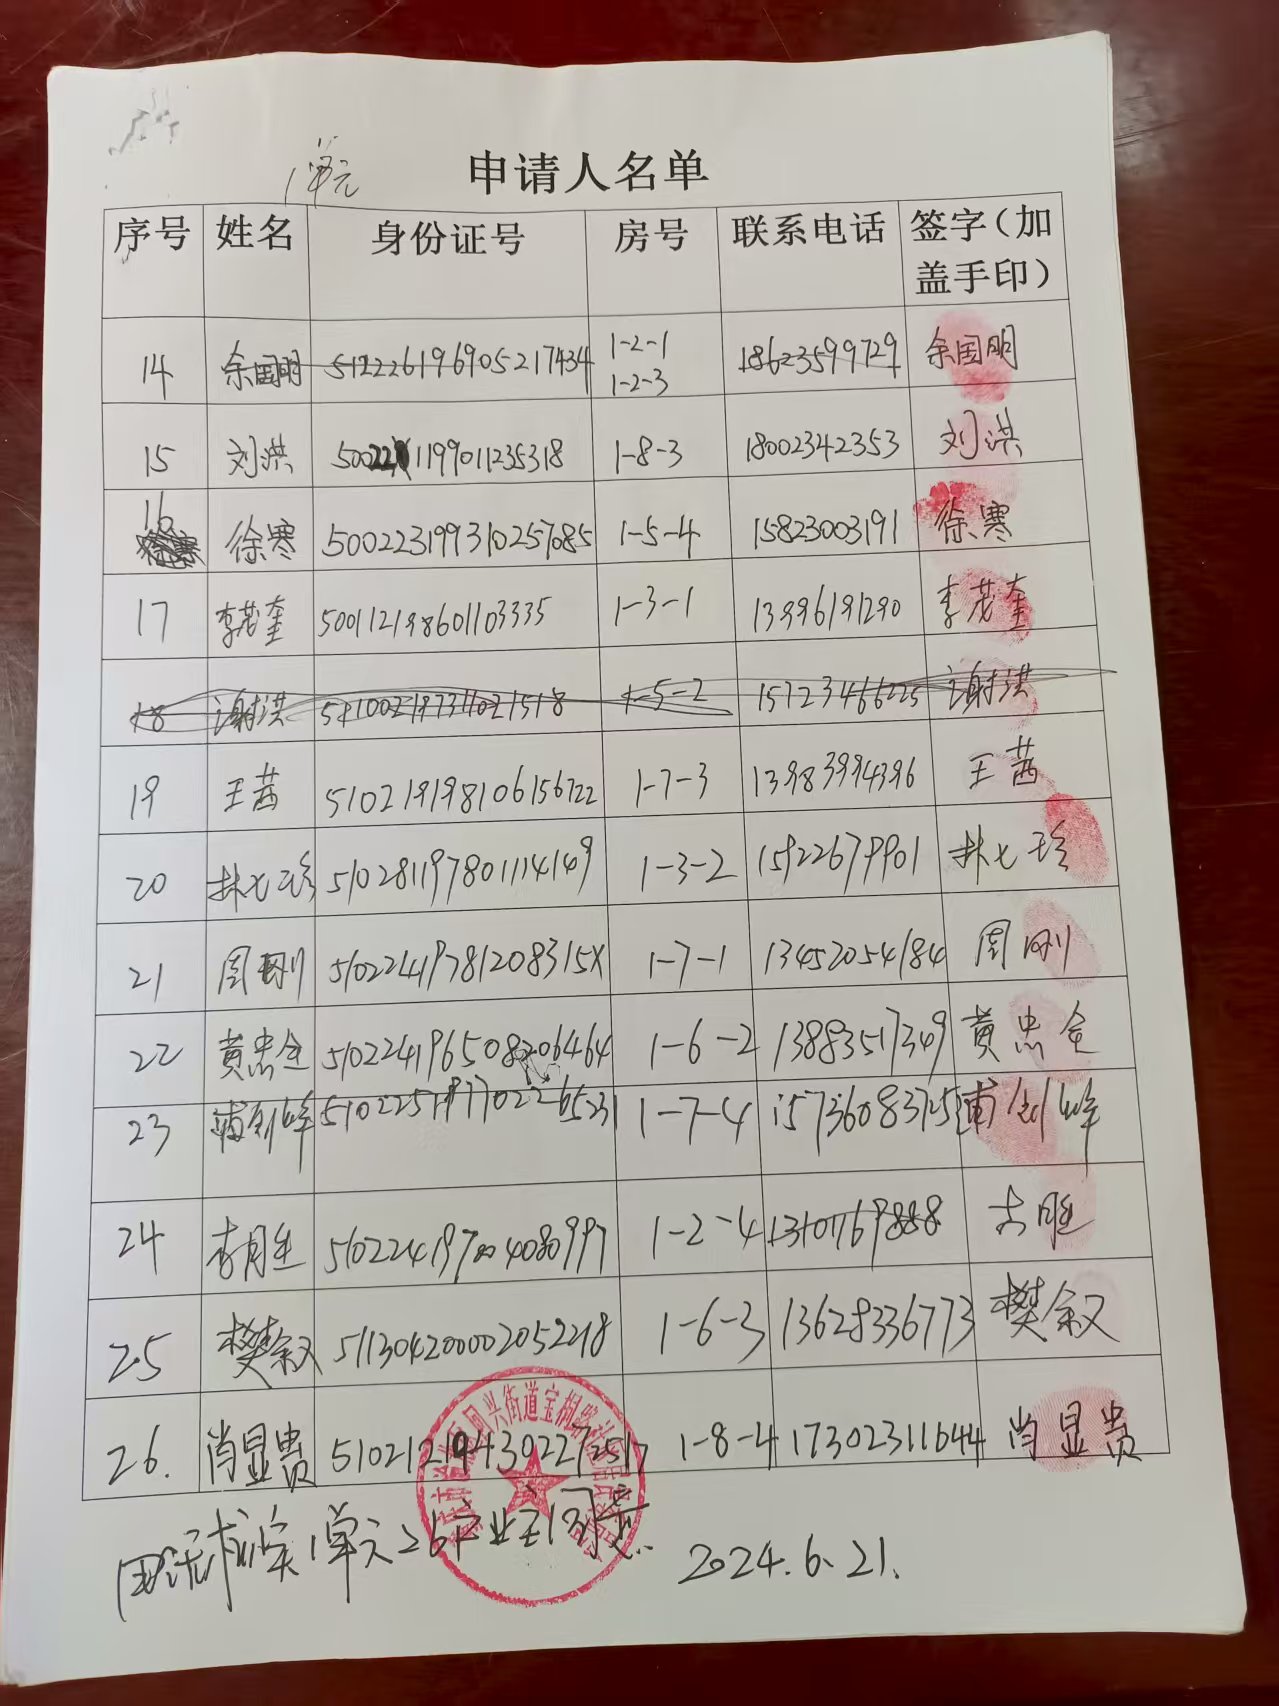 1单元
申请人名单
序号 姓名 身份证号 房号 联系电话 签字（加盖手印）
14 余国明 512226196905217434 1-2-1 1-2-3 18623599729 余国明
15 刘洪 1-8-3 18002342353 刘洪
16 徐寒 500223199310257085 1-5-4 15823003191 徐寒
17 李茂奎 500112198601103335 1-3-1 13996191290 李茂奎
18 谢洪 1-5-2 15723466225 谢洪
19 王茜 510219198106156722 1-7-3 13983994396 王茜
20 林七珍 510281197801114149 1-3-2 15922679901 林七珍
21 周刚 51022419781208315X 1-7-1 13452054184 周刚
22 黄忠全 510224196508206464 1-6-2 13883517349 黄忠全
23 510225197702265231 1-7-4 15736083725
24 1-2-4 13101769888
25 樊叙 511304200002052218 1-6-3 13628336773 樊叙
26. 肖显贵 510212194302272517 1-8-4 17302311644 肖显贵
凤兴街道宝桐路社区
1单元26户业主同意.
2024.6.21.